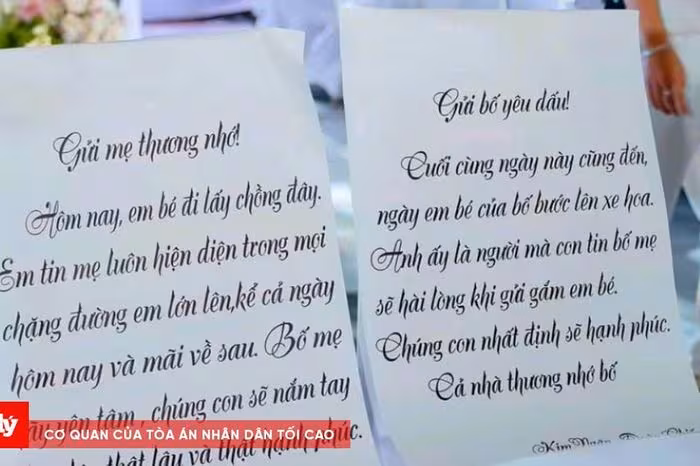 Gửi mẹ thương nhớ!
Hôm nay, em bé đi lấy chồng đây.
Em tin mẹ luôn hiện diện trong mọi
chặng đường em lớn lên,kể cả ngày
hôm nay và mãi về sau. Bố mẹ
yên tâm, chúng con sẽ nắm tay
thật lâu và thật hạnh phúc.
Gửi bố yêu dấu!
Cuối cùng ngày này cũng đến,
ngày em bé của bố bước lên xe hoa.
Anh ấy là người mà con tin bố mẹ
sẽ hài lòng khi gửi gắm em bé.
Chúng con nhất định sẽ hạnh phúc.
Cả nhà thương nhớ bố
Kim Ngân
lý
CƠ QUAN CỦA TÒA ÁN NHÂN DÂN TỐI CAO